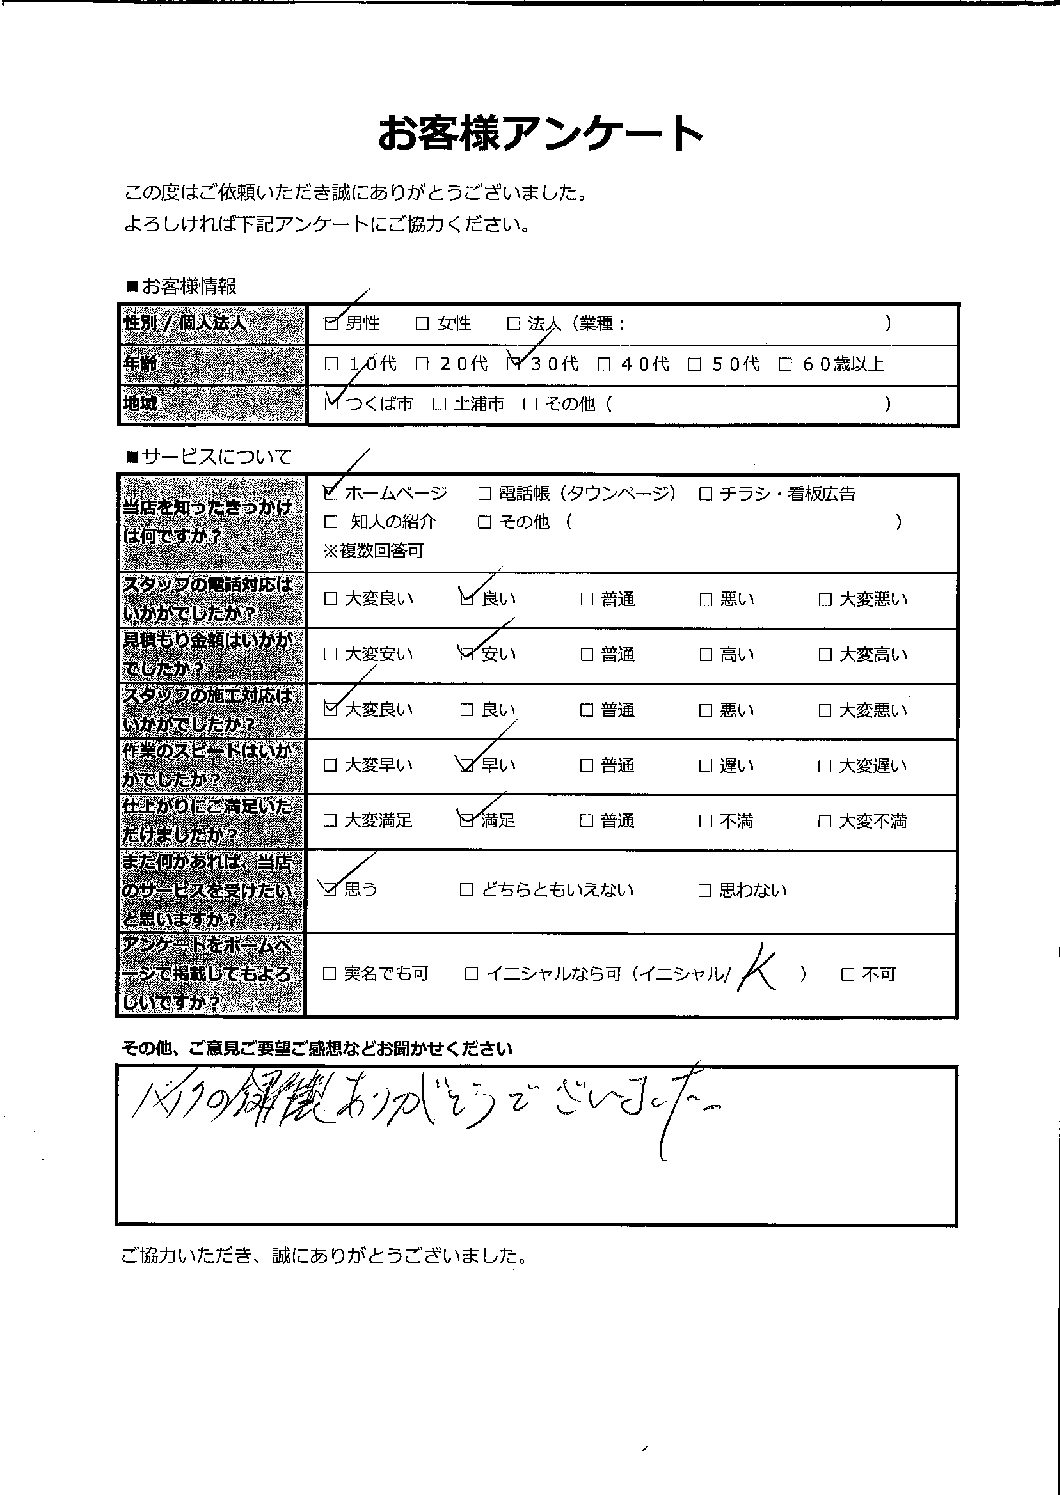 お客様アンケート
この度はご依頼いただき誠にありがとうございました。
よろしければ下記アンケートにご協力ください。
■お客様情報
性別 / 個人法人 ☑男性 □女性 □法人（業種： ）
年齢 □１０代 □２０代 ☑３０代 □４０代 □５０代 □６０歳以上
地域 ☑つくば市 □土浦市 □その他（ ）
■サービスについて
当店を知ったきっかけ
は何ですか？
☑ホームページ □電話帳（タウンページ） □チラシ・看板広告
□ 知人の紹介 □その他（ ）
※複数回答可
スタッフの電話対応は
いかがでしたか？
□大変良い ☑良い □普通 □悪い □大変悪い
見積もり金額はいかが
でしたか？
□大変安い ☑安い □普通 □高い □大変高い
スタッフの施工対応は
いかがでしたか？
☑大変良い □良い □普通 □悪い □大変悪い
作業のスピードはいか
がでしたか？
□大変早い ☑早い □普通 □遅い □大変遅い
仕上がりにご満足いた
だけましたか？
□大変満足 ☑満足 □普通 □不満 □大変不満
また何かあれば、当店
のサービスを受けたい
と思いますか？
☑思う □どちらともいえない □思わない
アンケートをホームペ
ージで掲載してもよろ
しいですか？
□実名でも可 □イニシャルなら可（イニシャル/ K ） □不可
その他、ご意見ご要望ご感想などお聞かせください
バイクの鍵作製ありがとうございました。
ご協力いただき、誠にありがとうございました。